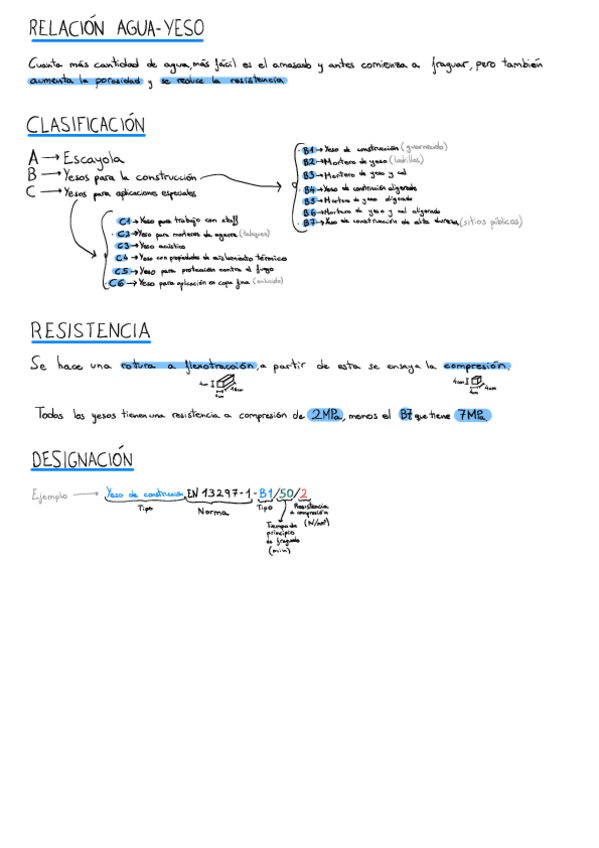 RELACIÓN AGUA-YESO
Cuanta más cantidad de agua, más fácil es el amasado y antes comienza a fraguar, pero también
aumenta la porosidad y se reduce la resistencia
CLASIFICACIÓN
A → Escayola
B → Yesos para la construcción
C → Yesos para aplicaciones especiales
· B1 → Yeso de construcción (guarnecido)
· B2 → Mortero de yeso (ladrillos)
· B3 → Mortero de yeso y cal
· B4 → Yeso de construcción aligerado
· B5 → Mortero de yeso aligerado
· B6 → Mortero de yeso y cal aligerado
· B7 → Yeso de construcción de alta dureza (sitios públicos)
· C1 → Yeso para trabajo con staff
· C2 → Yeso para morteros de agarre (tabiques)
· C3 → Yeso acústico
· C4 → Yeso con propiedades de aislamiento térmico
· C5 → Yeso para protección contra el fuego
· C6 → Yeso para aplicación en capa fina (enlucido)
RESISTENCIA
Se hace una rotura a flexotracción, a partir de esta se ensaya la compresión.
4cm 16cm 4cm
4cm 4cm 4cm
Todos los yesos tienen una resistencia a compresión de 2MPa, menos el B7 que tiene 7MPa.
DESIGNACIÓN
Ejemplo → Yeso de construcción EN 13297-1-B1/50/2
Tipo Norma Tipo Resistencia a compresión (N/mm²)
Tiempo de principio de fraguado (min)